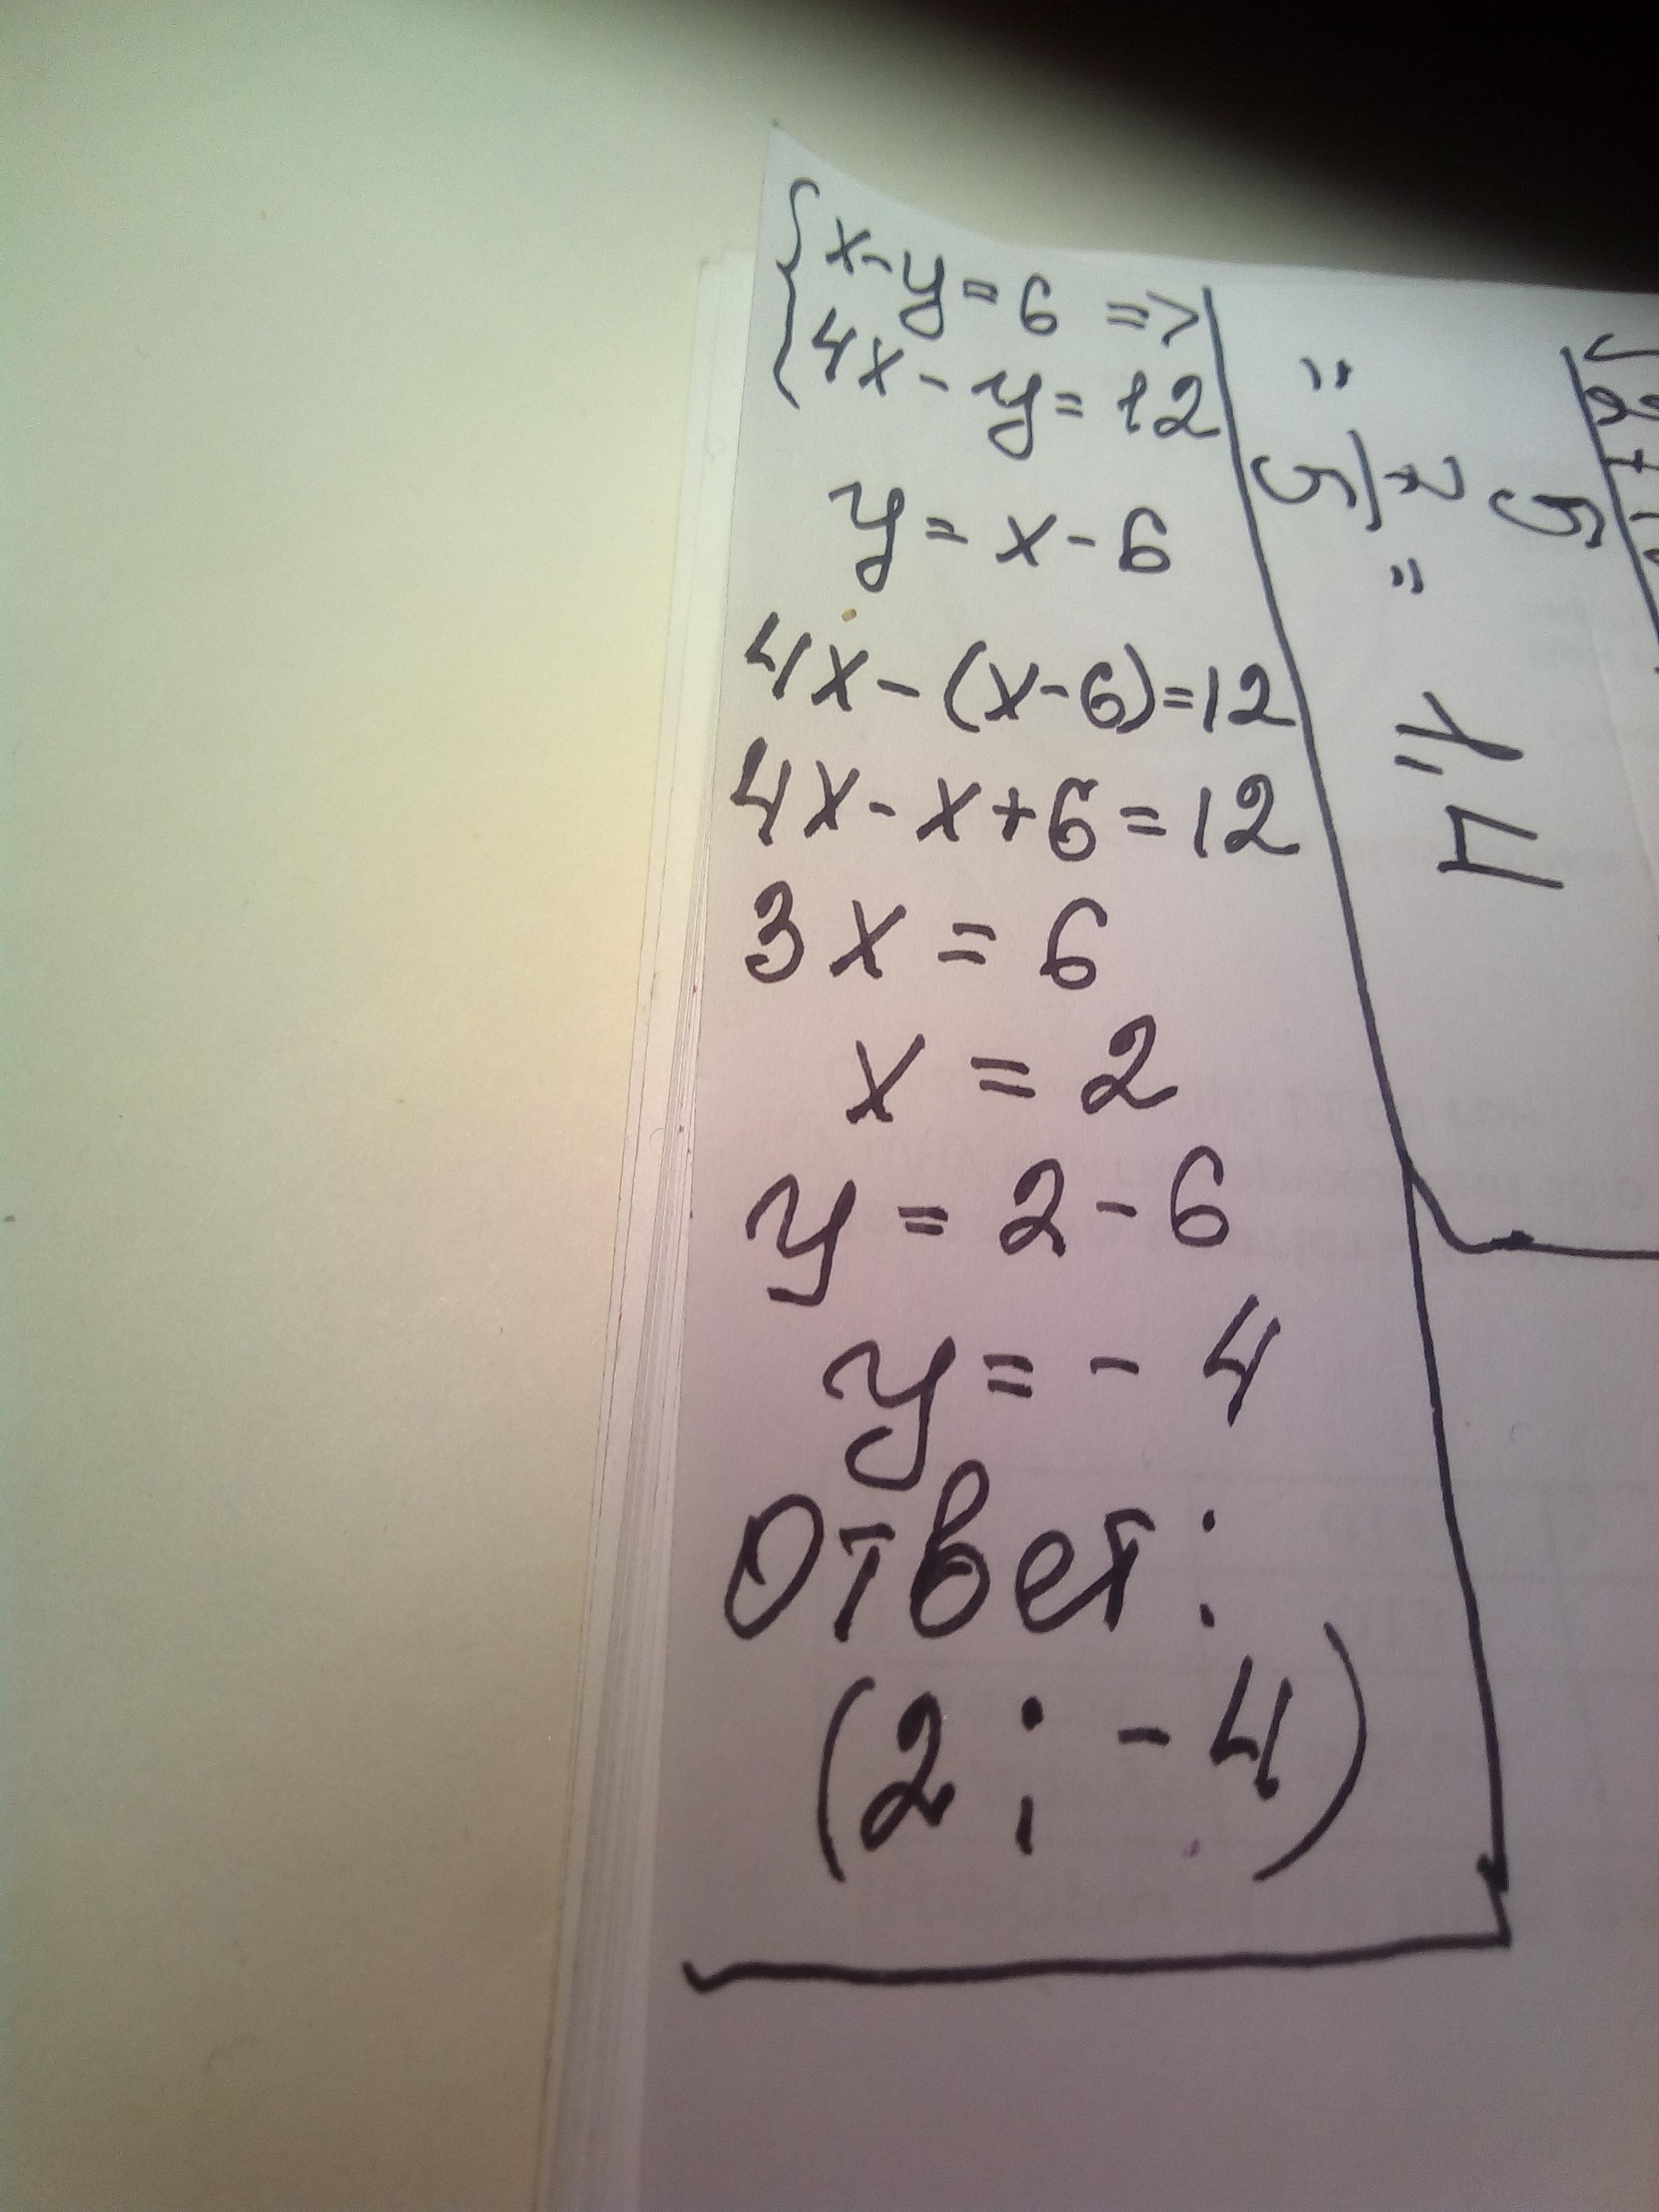 {x-y=6 =>
4x-y=12
y=x-6
4x-(x-6)=12
4x-x+6=12
3x=6
x=2
y=2-6
y=-4
Ответ:
(2;-4)